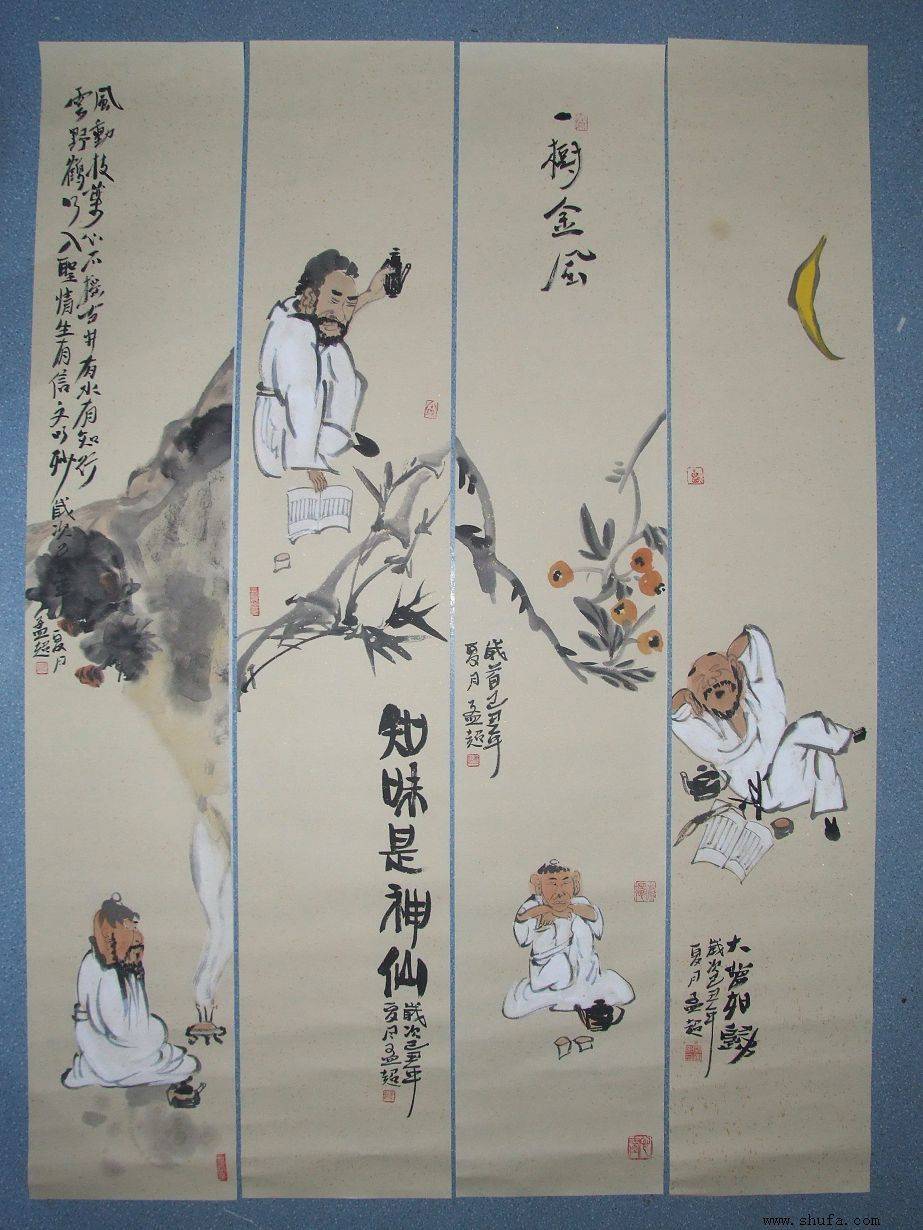 風動枝葉心不摇古井有水有知行
雲野鶴入聖情生有信文妙
歲次
夏月
孟超
知味是神仙
歲次己丑年
夏月孟超
一樹金風
歲首己丑年
夏月孟超
歲次己丑年
夏月孟超
www.shufa.com